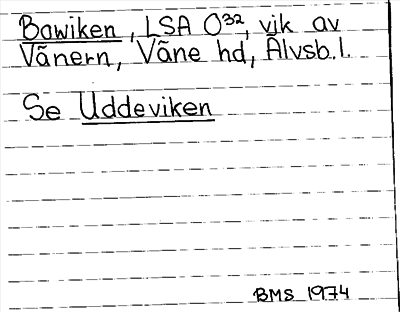 Bowiken, LSA O³², vik av
Vänern, Väne hd, Älvsb.l.
Se Uddeviken
BMS 1974